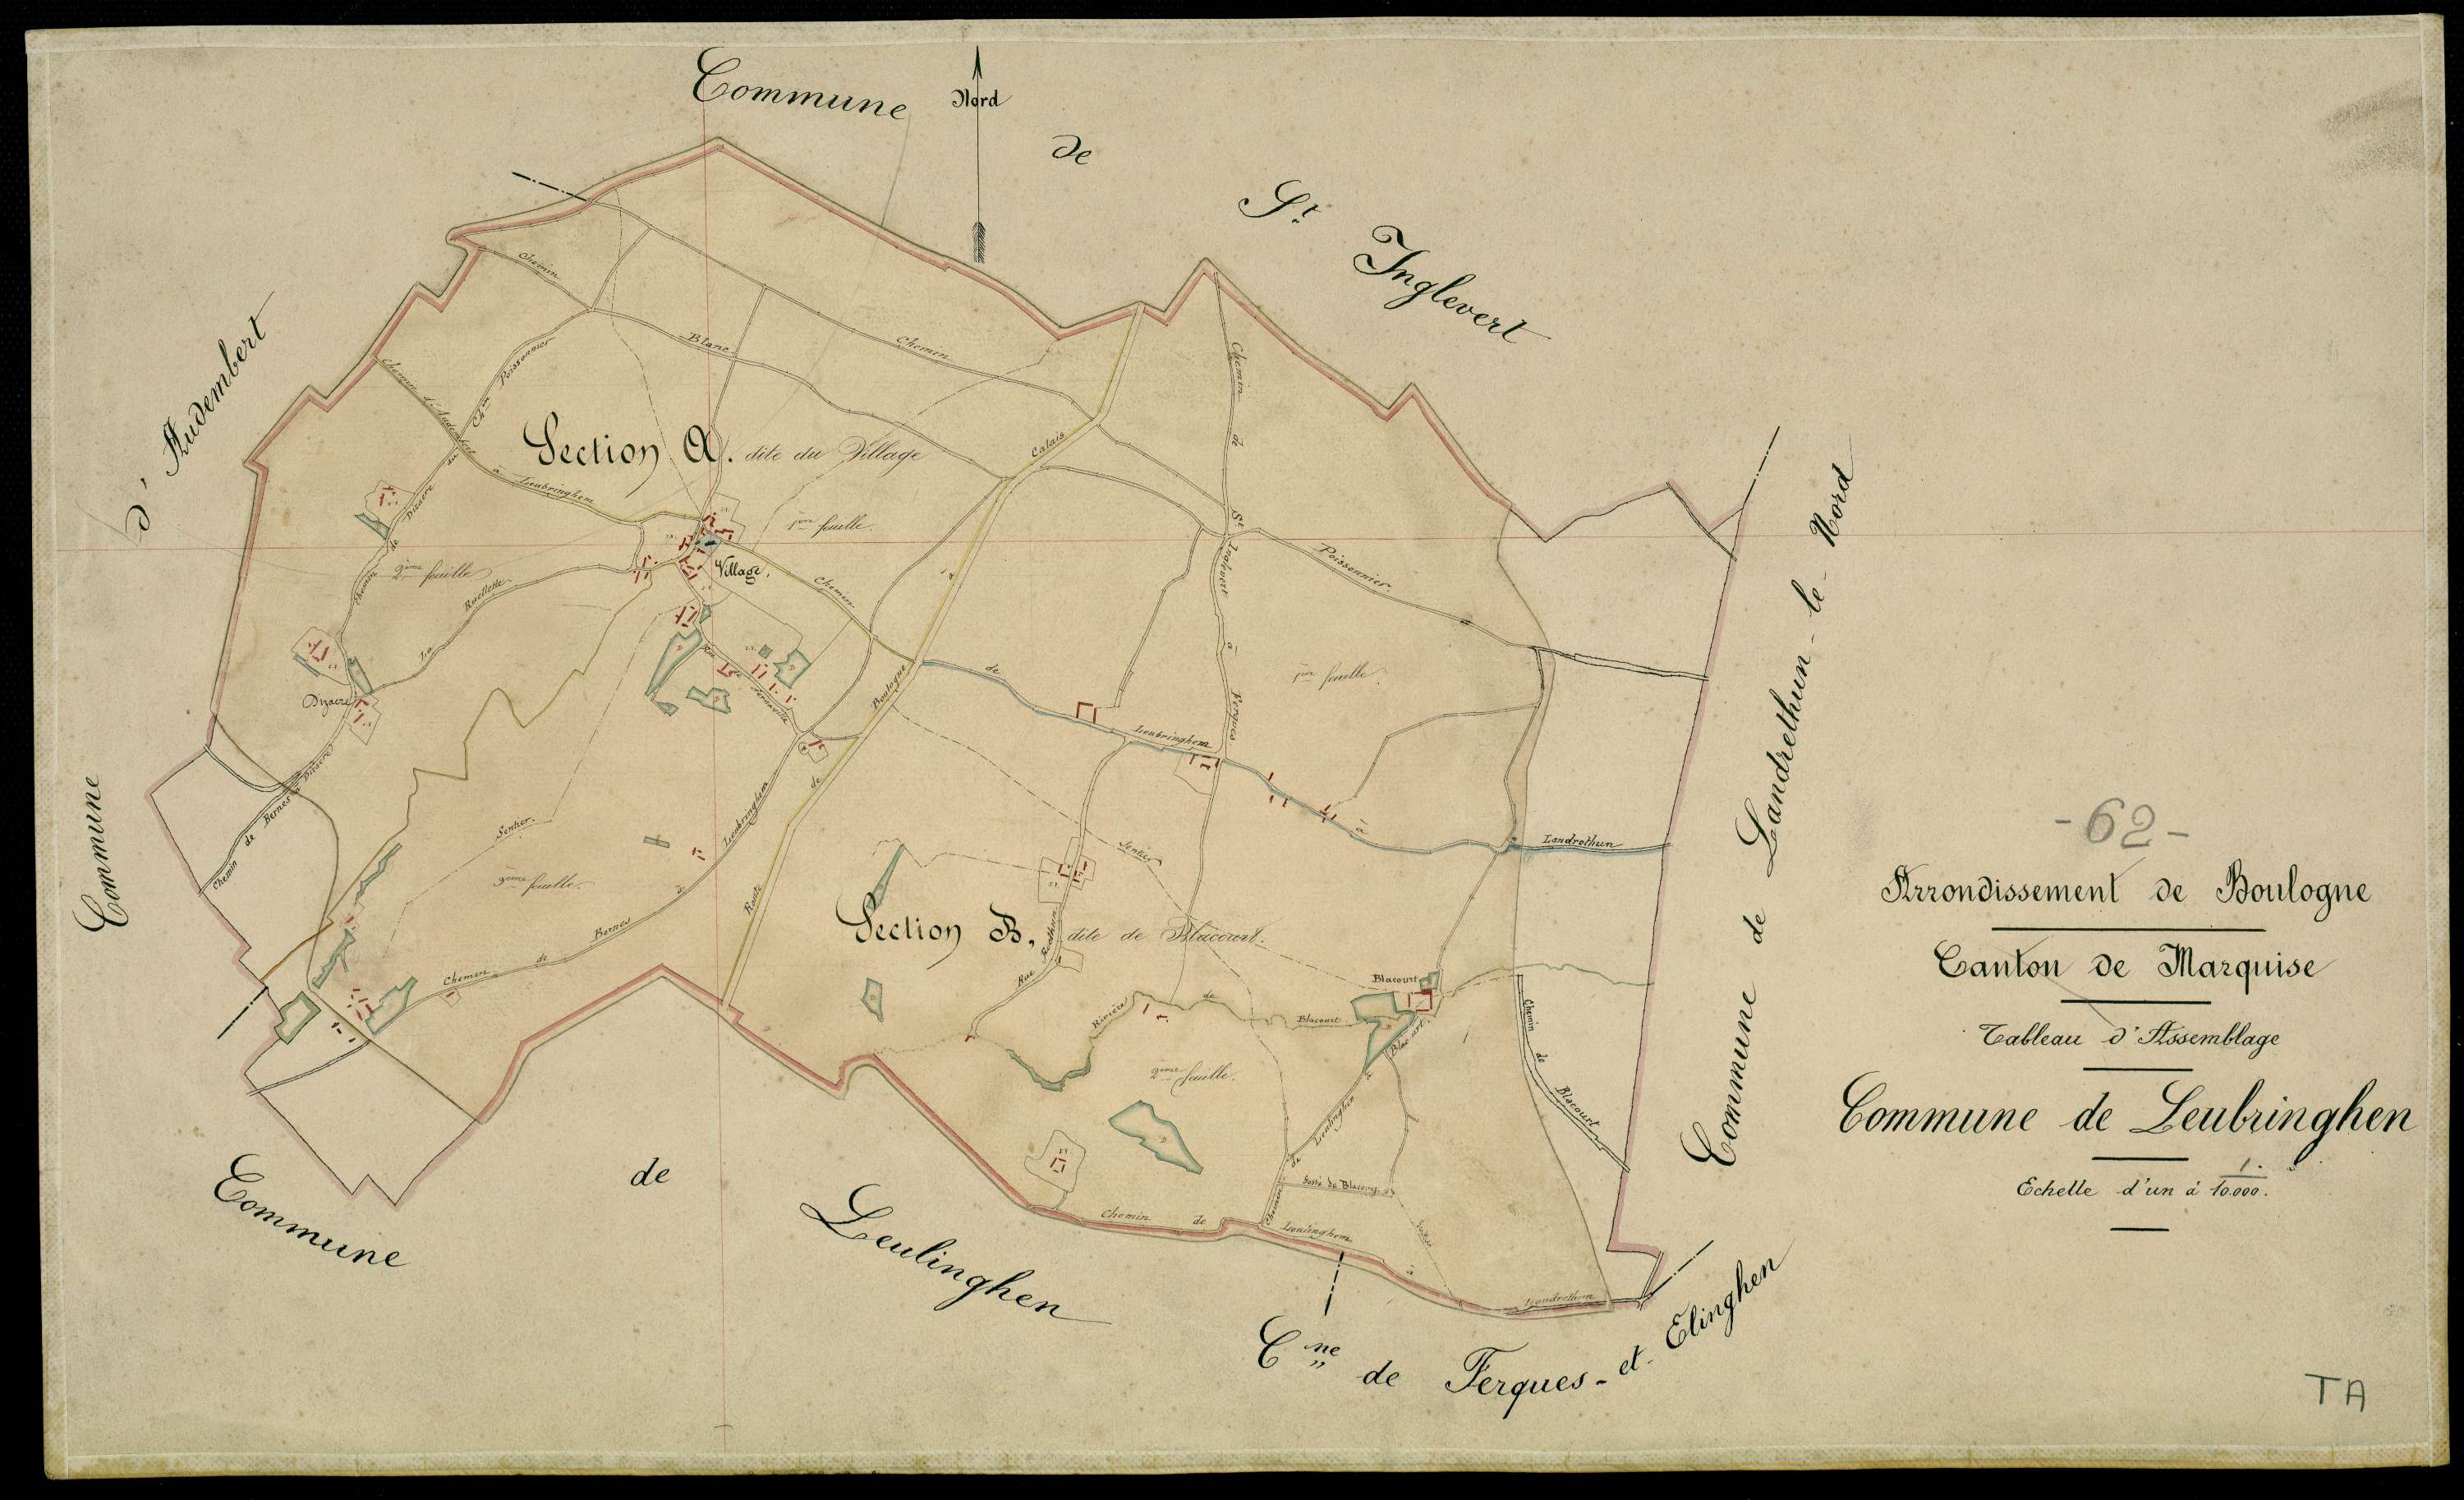 Commune
Nord
de
St
Inglevert
d'Audembert
Chemin
Blanc
Chemin
Chin Poissonnier
Chemin d'Audembert à Leubringhem
Chemin de Dizacre au
Section A. dite du Village
1ère feuille.
2ème feuille
Calais
à
Chemin de St Inglevert à Ferques
Poissonnier
Village.
Chemin de Leubringhem à Landrethun
La Ruellette
1ère feuille.
Dizacre
Boulogne
Route de
Chemin de Bernes à Dizacre
Sentier
3ème feuille.
Chemin de Bernes à Leubringhem
Sentier
Section B, dite de Blacourt.
Rue
Rivière de Blacourt
Blacourt
Blacourt
2ème feuille.
Chemin de Leulinghen à
Chemin de Blacourt
Chemin de Leulinghem à Landrethun
Commune
Commune
de
Leulinghen
Cne de Ferques-et-Elinghen
Commune de Landrethun-le-Nord
-62-
Arrondissement de Boulogne
Canton de Marquise
Tableau d'Assemblage
Commune de Leubringhen
Echelle d'un à 1/10.000.
TA